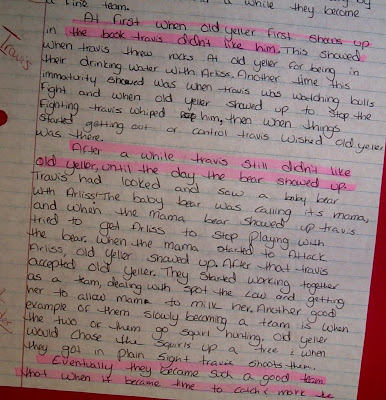 a while they become
a fine team.
At first when old yeller first shows up
in the book travis didn't like him. This showed
when travis threw rocks At old yeller for being in
their drinking water with Arliss. Another time this
immaturity showed was when travis was watching bulls
fight and when old yeller showed up to stop the
fighting travis whiped him, then when things
started getting out or control travis wished old yeller
was there.
After a while travis still didn't like
old yeller, until the day the bear showed up.
Travis had looked and saw a baby bear
with Arliss! The baby bear was calling its mama,
and when the mama bear showed up travis
tried to get Arliss to stop playing with
the bear. when the mama started to Attack
Arliss, old yeller showed up. After that travis
accepted old yeller. They started working together
as a team, dealing with spot the cow and getting
her to allow mama to milk her. Another good
example of them slowly becoming a team is when
the two or them go squirl hunting. old yeller
would chase the squirls up a tree & when
they got in plain sight travis shoots them.
Eventually they became such a good team
that when it became time to catch & mark the
Travis